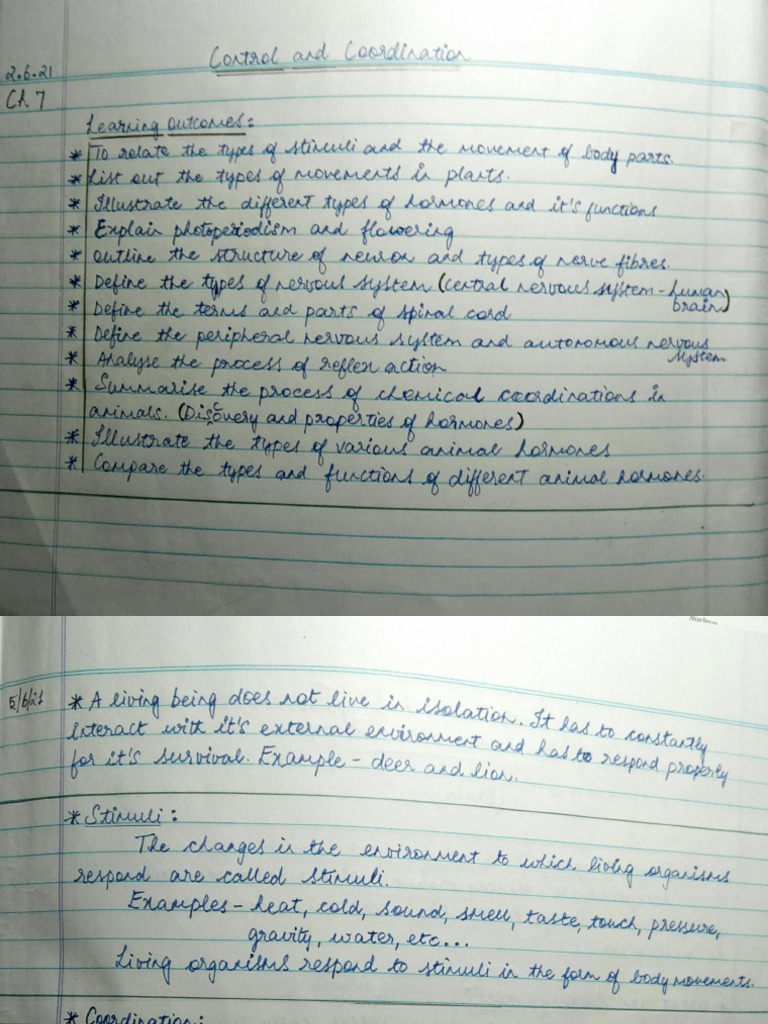 Control and Coordination
2.6.21
Ch 7
Learning outcomes:
* To relate the types of stimuli and the movement of body parts.
* List out the types of movements in plants.
* Illustrate the different types of hormones and it's functions
* Explain photoperiodism and flowering
* Outline the structure of neuron and types of nerve fibres.
* Define the types of nervous system (central nervous system - human brain)
* Define the terms and parts of spinal cord
* Define the peripheral nervous system and autonomous nervous system
* Analyse the process of reflex action
* Summarise the process of chemical coordinations in
animals. (Discovery and properties of hormones)
* Illustrate the types of various animal hormones
* Compare the types and functions of different animal hormones.
5/6/21
* A living being does not live in isolation. It has to constantly
interact with it's external environment and has to respond properly
for it's survival. Example - deer and lion.
* Stimuli:
The changes in the environment to which living organisms
respond are called stimuli.
Examples - heat, cold, sound, smell, taste, touch, pressure,
gravity, water, etc...
Living organisms respond to stimuli in the form of body movements.
* Coordination: